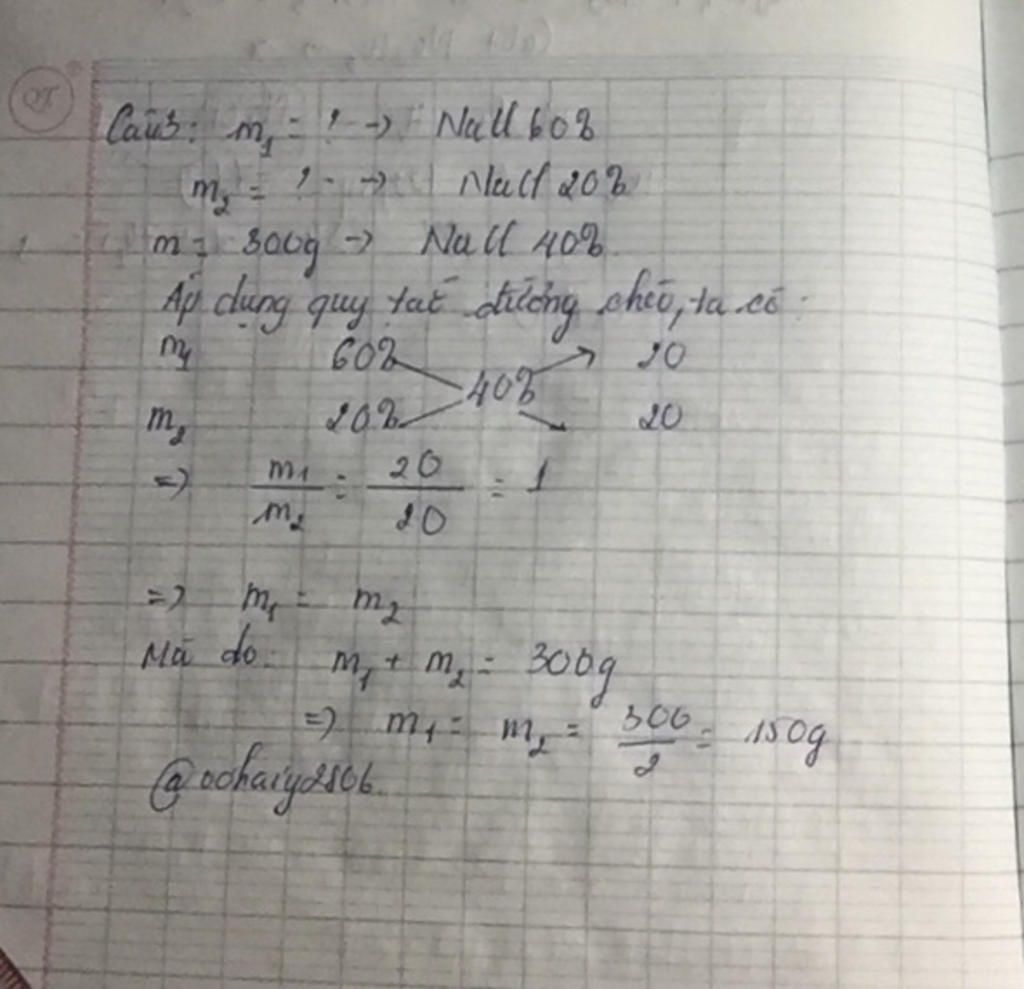 Câu 3: m₁ = ? → NaCl 60%
m₂ = ? → NaCl 20%
m = 300g → NaCl 40%
Áp dụng quy tắc đường chéo, ta có:
m₁ 60% 20
40%
m₂ 20% 20
=> m₁/m₂ = 20/20 = 1
=> m₁ = m₂
Mà do: m₁ + m₂ = 300g
=> m₁ = m₂ = 300/2 = 150g